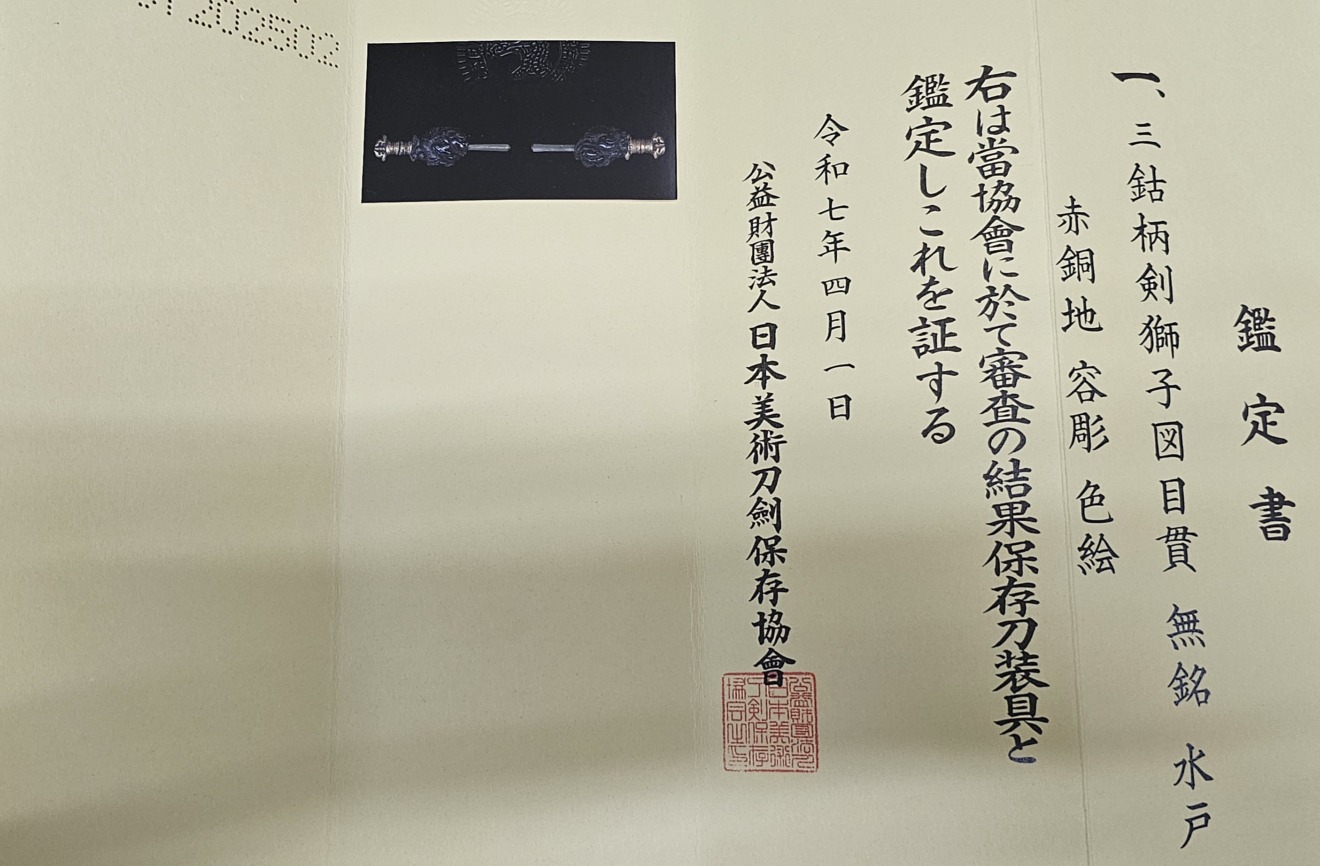 鑑定書
一、三鈷柄剣獅子図目貫 無銘 水戸
赤銅地 容彫 色絵
右は當協會に於て審査の結果保存刀装具と
鑑定しこれを証する
令和七年四月一日
公益財團法人日本美術刀劍保存協會
202502